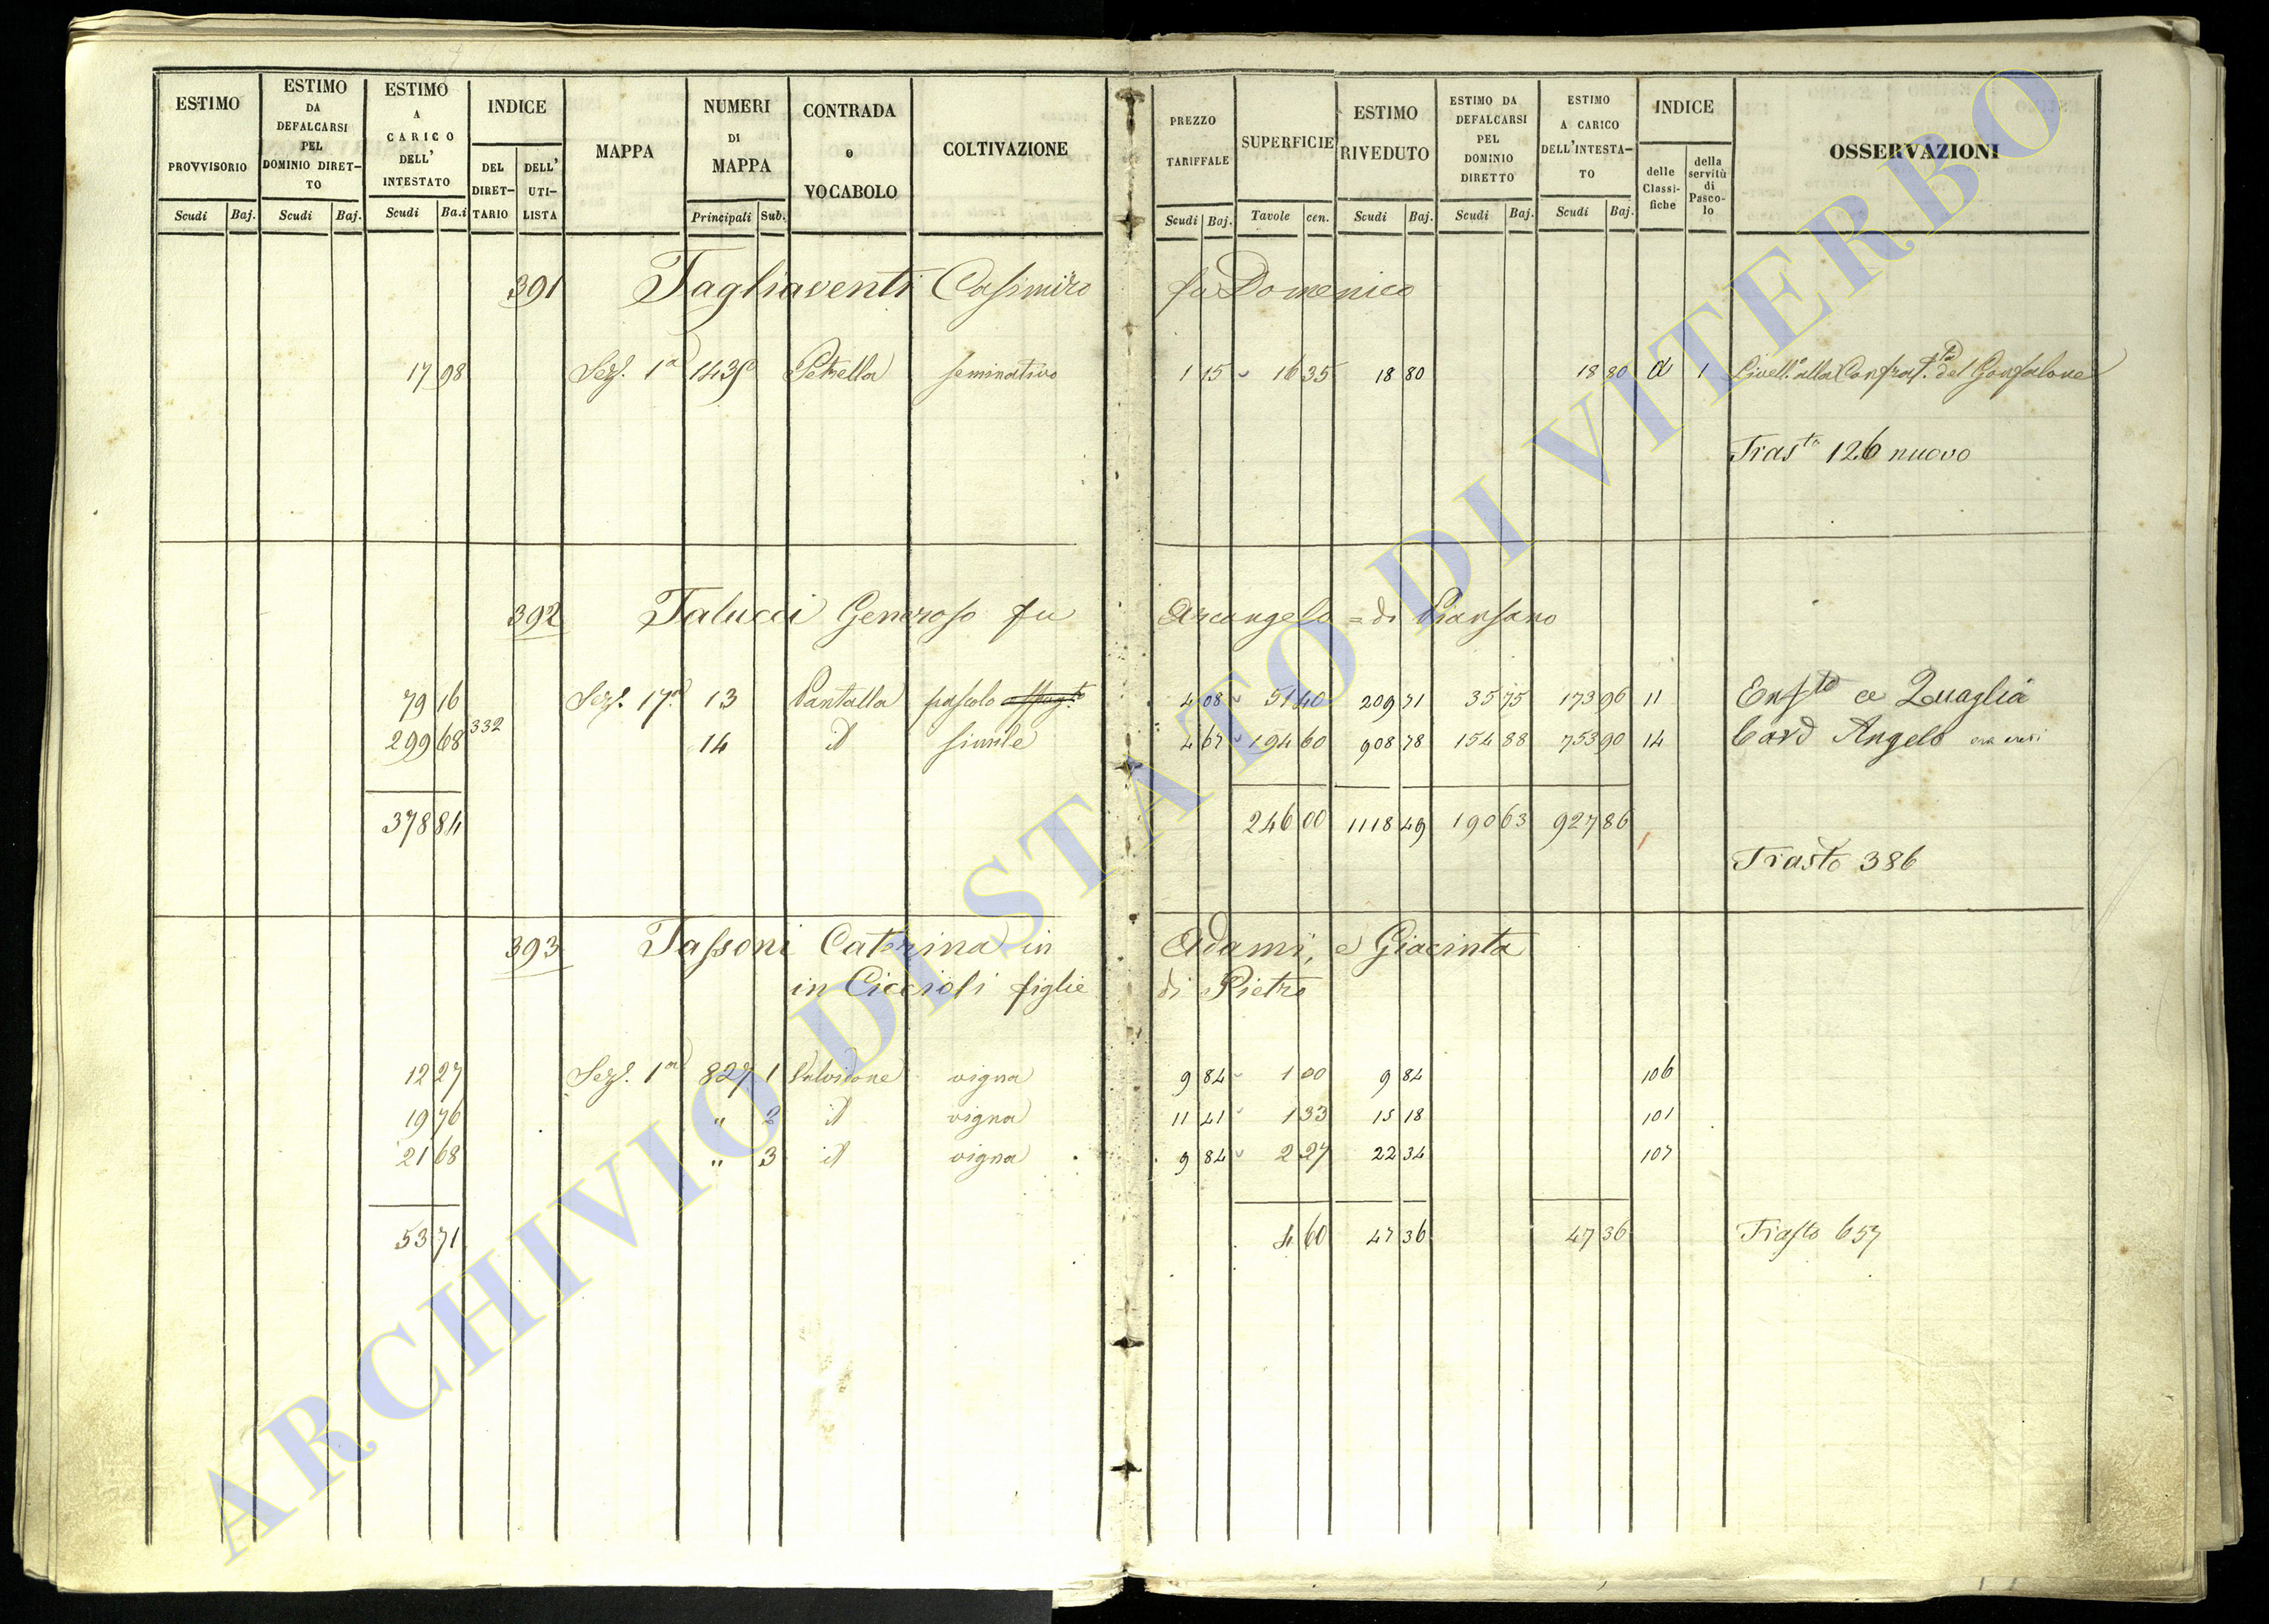 ESTIMO PROVVISORIO Scudi Baj.
ESTIMO DA DEFALCARSI PEL DOMINIO DIRET-TO Scudi Baj.
ESTIMO A CARICO DELL' INTESTATO Scudi Ba.i
INDICE DEL DIRET-TARIO DELL' UTI-LISTA
MAPPA
NUMERI DI MAPPA Principali Sub.
CONTRADA o VOCABOLO
COLTIVAZIONE
PREZZO TARIFFALE Scudi Baj.
SUPERFICIE Tavole cen.
ESTIMO RIVEDUTO Scudi Baj.
ESTIMO DA DEFALCARSI PEL DOMINIO DIRETTO Scudi Baj.
ESTIMO A CARICO DELL'INTESTA-TO Scudi Baj.
INDICE delle Classi-fiche della servitù di Pasco-lo
OSSERVAZIONI
391 Tagliaventi Casimiro fu Domenico
17 98 Sez. 1a Petrella seminativo 1 15 16 35 18 80 18 80 a 1 Livell.o alla Confrat.ta del Gonfalone
Tras.to 126 nuovo
392 Talucci Generoso fu Arcangelo = di Piansano
79 16 Sez. 17a 13 Pantalla pascolo 4 08 51 40 209 71 35 75 173 96 11 Enf.to a Quaglia
299 68 332 14 id simile 4 67 194 60 908 78 154 88 753 90 14 Card Angelo ora eredi
378 84 246 00 1118 49 190 63 927 86
Trasto 386
393 Tassoni Caterina in Adami, e Giacinta
in Ciccioli figlie di Pietro
12 27 Sez. 1a 827 1 Salvicione vigna 9 84 1 00 9 84 106
19 76 " 2 id vigna 11 41 1 33 15 18 101
21 68 " 3 id vigna 9 84 2 27 22 34 107
53 71 4 60 47 36 47 36 Trasto 657
ARCHIVIO DI STATO DI VITERBO